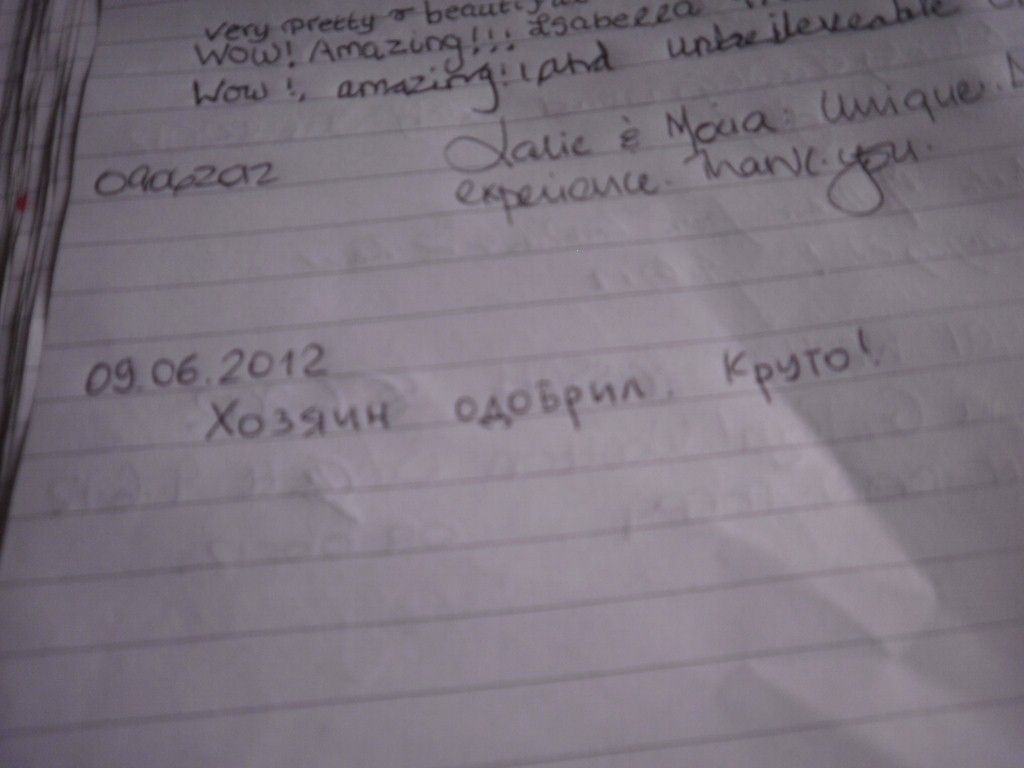 very pretty & beautiful
WOW! Amazing!!! Isabella
Wow!, amazing! and unbeileveable
& Moua: Unique.
experience. Thank you.
09.06.2012
Хозяин одобрил. Круто!